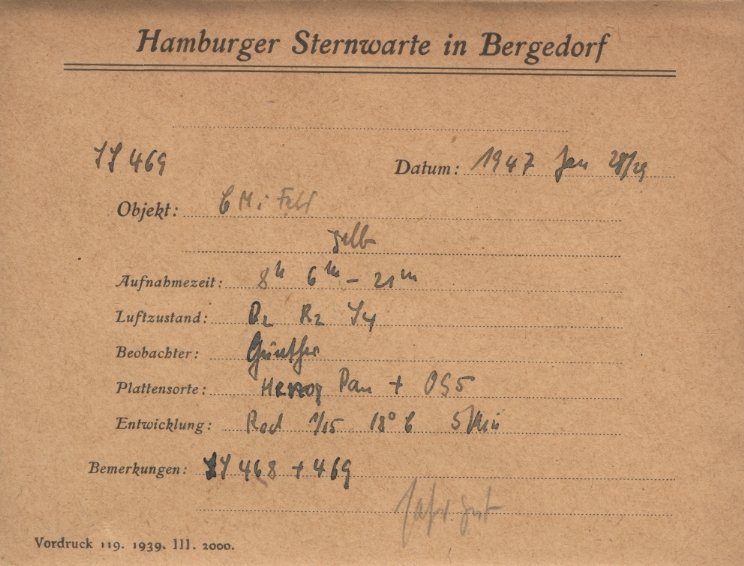 Hamburger Sternwarte in Bergedorf
469
Datum: 1947 Jan 28/29
Objekt: Mi Feld
gelb
Aufnahmezeit: 8h 6m – 21m
Luftzustand: D2 R2 S4
Beobachter: Günther
Plattensorte: Herzog Pan + OG5
Entwicklung: Rod 1/15 18° C 5 Min
Bemerkungen: 468 + 469
sehr gut
Vordruck 119. 1939. III. 2000.